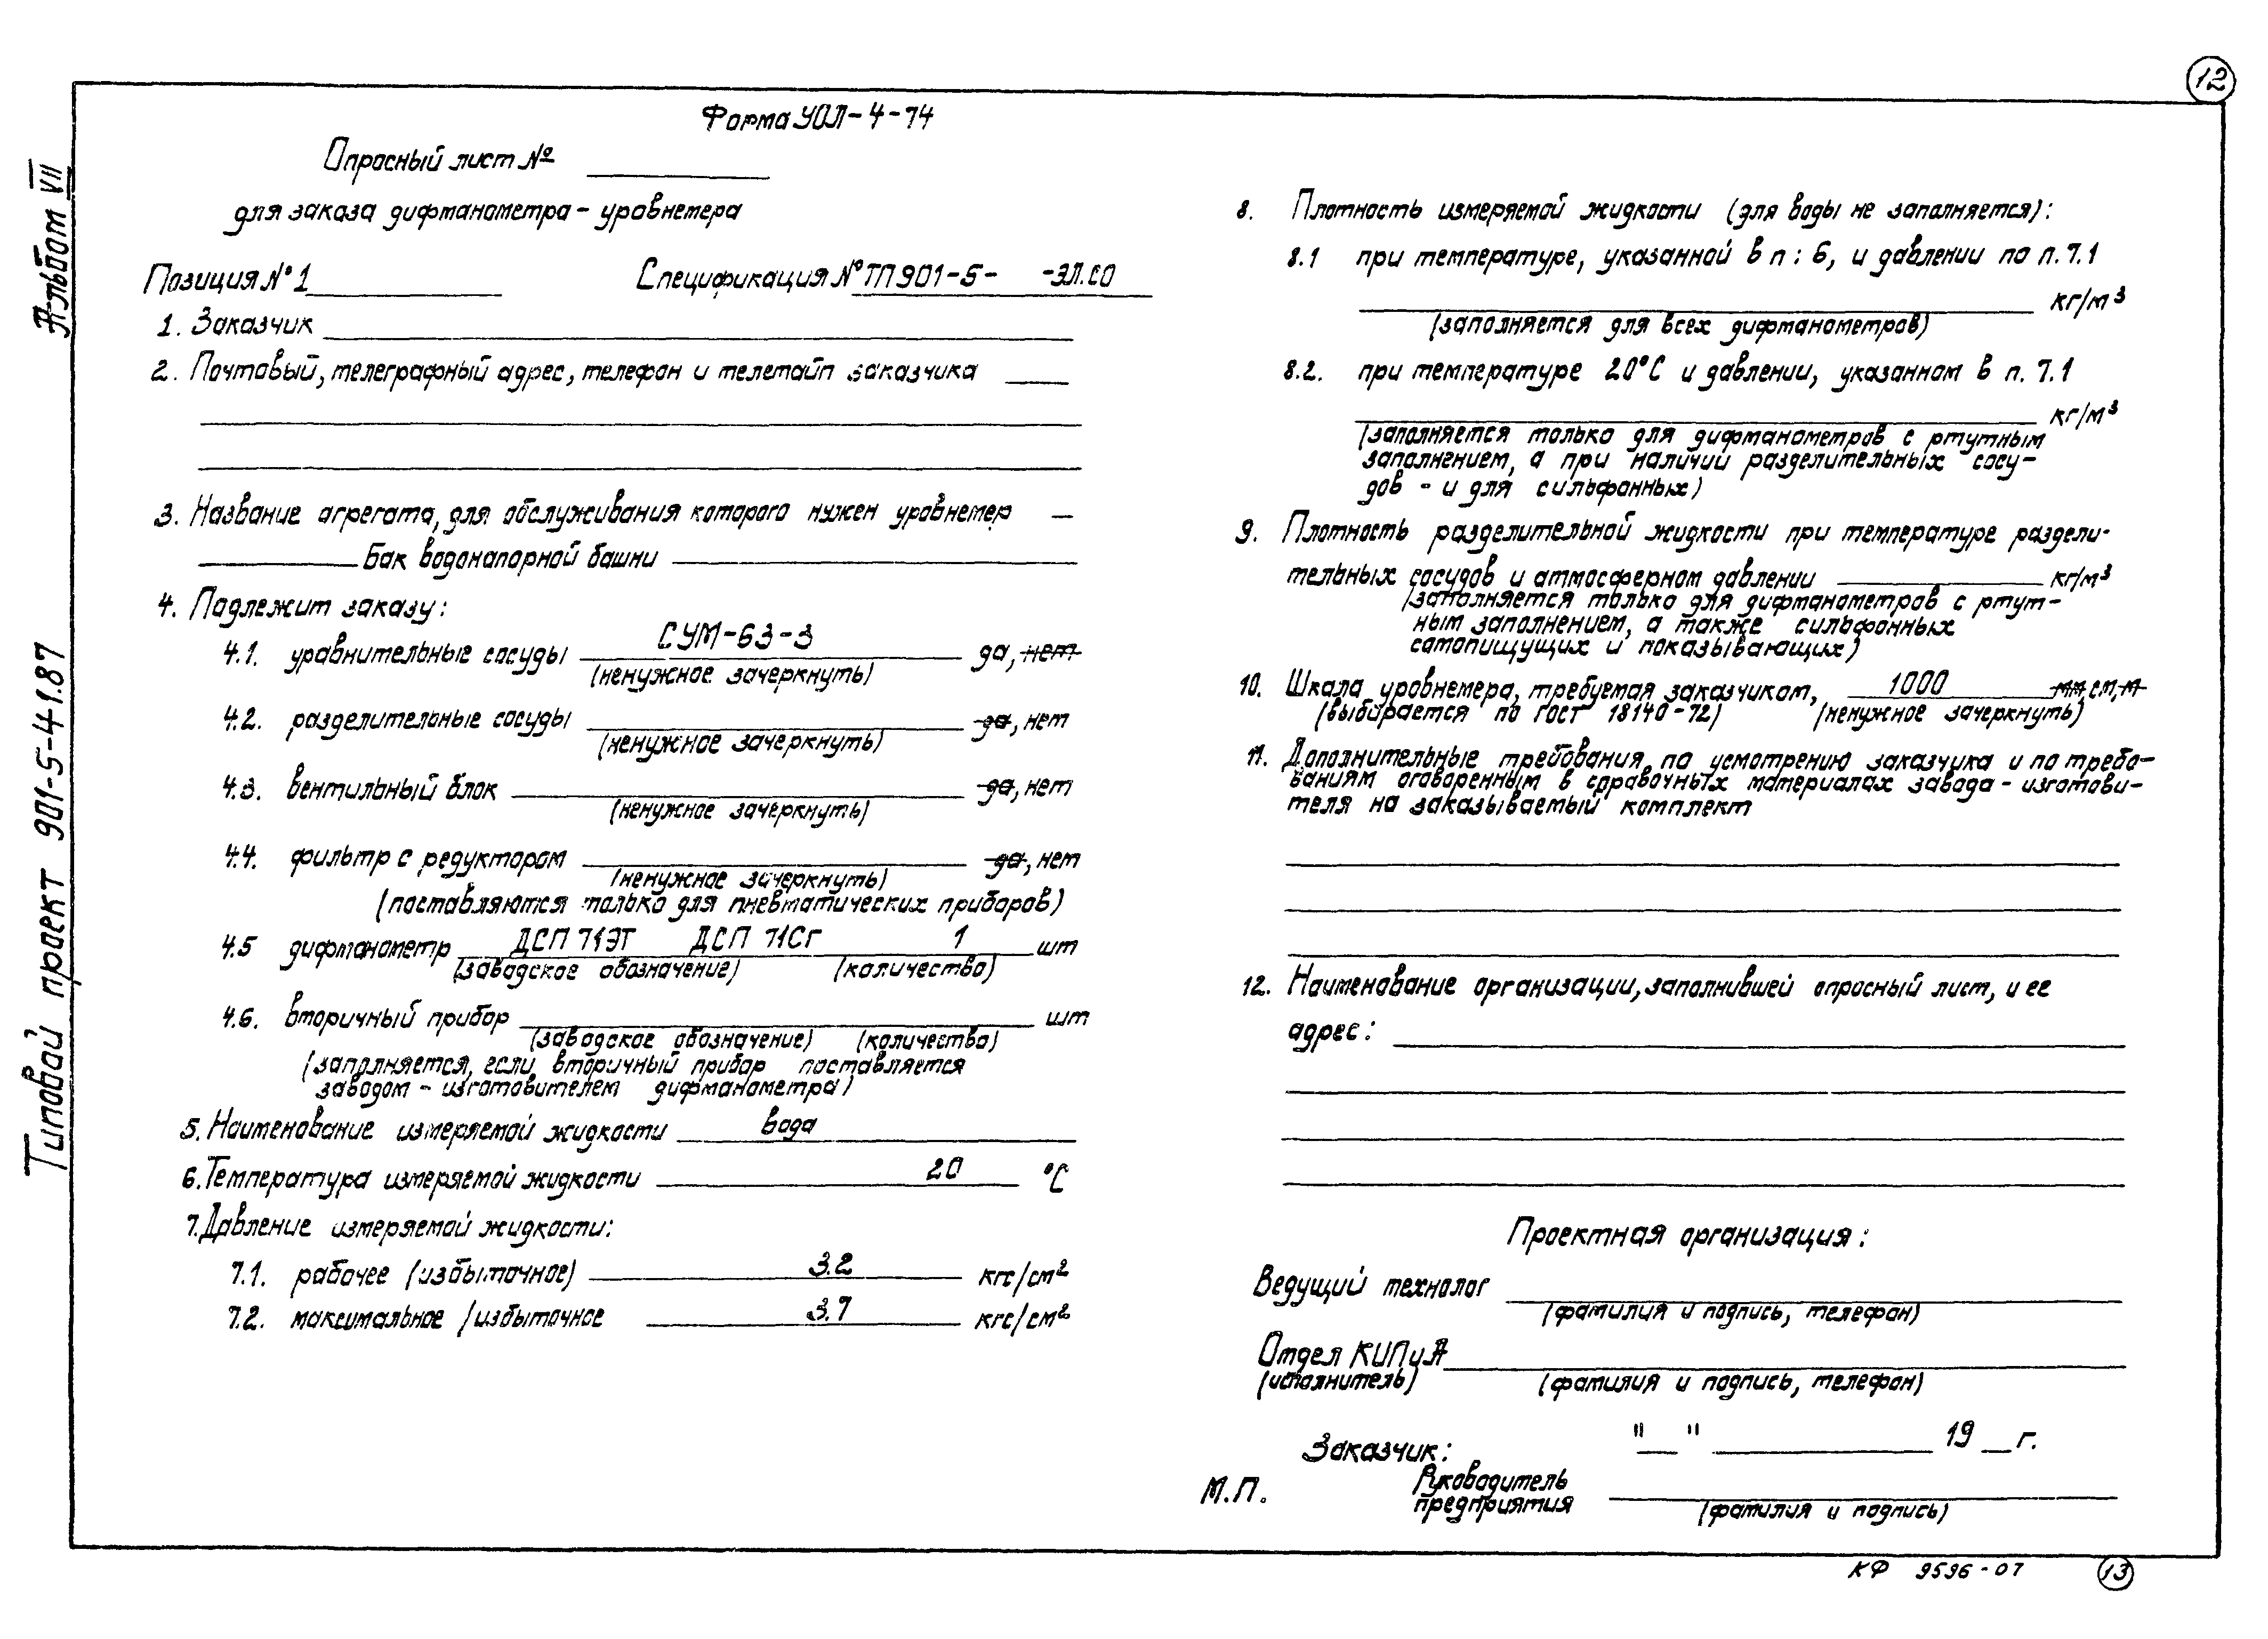 12
Альбом VII
Типовой проект 901-5-41.87
Форма УОЛ-4-74
Опросный лист №
для заказа дифманометра - уровнемера
Позиция № 1 Спецификация № ТП 901-5- -ЭЛ.СО
1. Заказчик
2. Почтовый, телеграфный адрес, телефон и телетайп заказчика
3. Название агрегата, для обслуживания которого нужен уровнемер
Бак водонапорной башни
4. Подлежит заказу:
4.1. уравнительные сосуды СУМ-63-3 да, нет
(ненужное зачеркнуть)
4.2. разделительные сосуды да, нет
(ненужное зачеркнуть)
4.3. вентильный блок да, нет
(ненужное зачеркнуть)
4.4. фильтр с редуктором да, нет
(ненужное зачеркнуть)
(поставляются только для пневматических приборов)
4.5 дифманометр ДСП 71ЭТ ДСП 71Сг 1 шт
(заводское обозначение) (количество)
4.6. вторичный прибор шт
(заводское обозначение) (количество)
(заполняется, если вторичный прибор поставляется
заводом - изготовителем дифманометра)
5. Наименование измеряемой жидкости вода
6. Температура измеряемой жидкости 20 °С
7. Давление измеряемой жидкости:
7.1. рабочее (избыточное) 3.2 кгс/см²
7.2. максимальное /избыточное 3.7 кгс/см²
8. Плотность измеряемой жидкости (для воды не заполняется):
8.1 при температуре, указанной в п: 6, и давлении по п. 7.1
кг/м³
(заполняется для всех дифманометров)
8.2. при температуре 20°С и давлении, указанном в п. 7.1
кг/м³
(заполняется только для дифманометров с ртутным
заполнением, а при наличии разделительных сосу-
дов - и для сильфонных)
9. Плотность разделительной жидкости при температуре раздели-
тельных сосудов и атмосферном давлении кг/м³
(заполняется только для дифманометров с ртут-
ным заполнением, а также сильфонных
самопищущих и показывающих)
10. Шкала уровнемера, требуемая заказчиком, 1000 мм, см, м
(выбирается по ГОСТ 18140-72) (ненужное зачеркнуть)
11. Дополнительные требования по усмотрению заказчика и по требо-
ваниям оговоренным в справочных материалах завода - изготови-
теля на заказываемый комплект
12. Наименование организации, заполнившей опросный лист, и ее
адрес:
Проектная организация:
Ведущий технолог
(фамилия и подпись, телефон)
Отдел КИПиА
(исполнитель) (фамилия и подпись, телефон)
Заказчик: " " 19 г.
М.П. Руководитель
предприятия
(фамилия и подпись)
КФ 9596-07 13